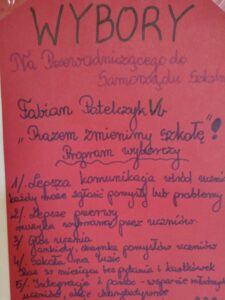 WYBORY
Na Przewodniczącego do
Samorządu Szkoln
Fabian Patelczyk Vb
„Razem zmienimy szkołę”!
Program wyborczy
1/. Lepsza komunikacja wśród uczni
każdy może zgłosić pomysły lub problemy
2/. Lepsze przerwy
muzyka wybrana przez uczniów.
3/. Głos ucznia
ankiety, skrzynka pomysłów uczniów
4/. Szkoła na luzie
raz w miesiącu bez pytania i kartkówek
5/. Integracja i pomoc - wsparcie młodszych
uczniów, akcje charytatywne